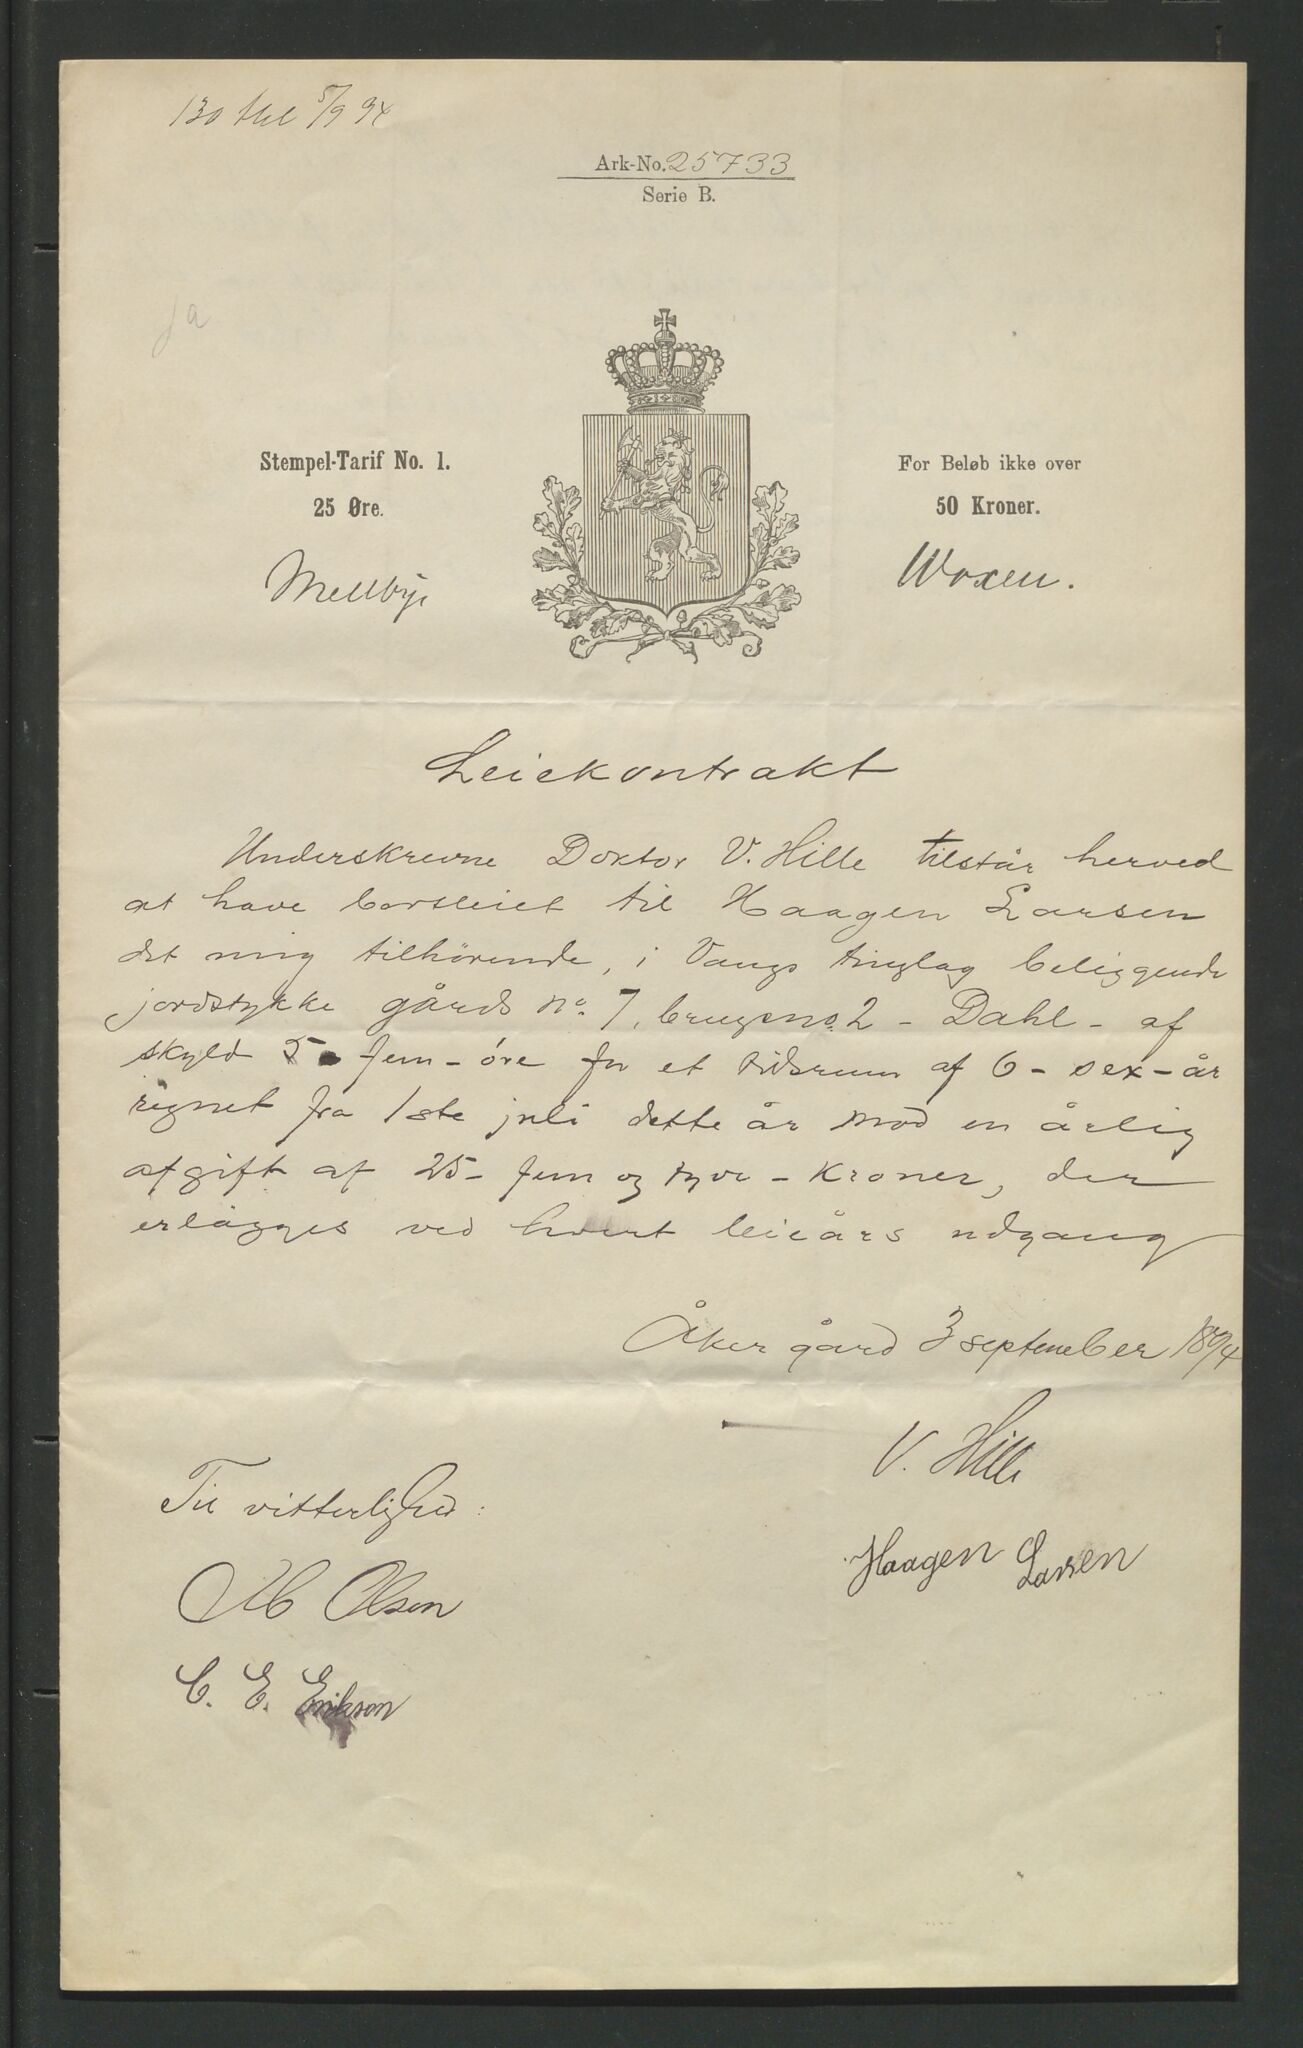 130 5/9 94
Ark-No. 25733
Serie B.
ja
Stempel-Tarif No. 1.
25 Øre.
For Beløb ikke over
50 Kroner.
Mellbye
Woxen.
Leiekontrakt
Underskrevne Doktor V. Hille tilstår herved
at have bortleiet til Haagen Larsen
det mig tilhørende, i Vangs tinglag beliggende
jordstykke gårds no. 7, brugsno. 2 - Dahl - af
skyld 5 - fem - øre for et tidsrum af 6 - sex - år
regnet fra 1ste juli dette år mod en årlig
afgift af 25 - fem og tyve - kroner, der
erlægges ved hvert leieårs udgang
Åker gård 3 september 1894
V. Hille
Til vitterlighed:
Haagen Larsen
Olsen
C. E. Erikson